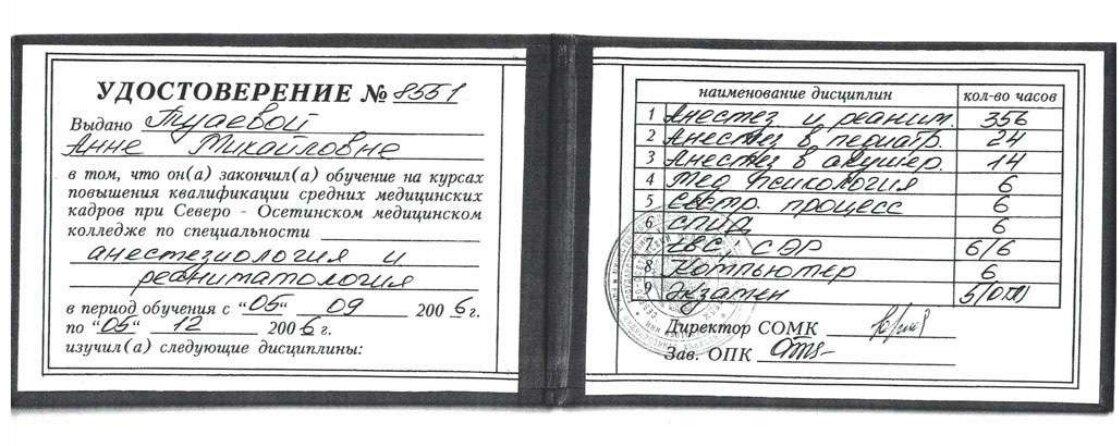 УДОСТОВЕРЕНИЕ № 8551
Выдано Туаевой
Анне Михайловне
в том, что он(а) закончил(а) обучение на курсах
повышения квалификации средних медицинских
кадров при Северо - Осетинском медицинском
колледже по специальности
анестезиология и
реаниматология
в период обучения с "05" 09 2006г.
по "05" 12 2006г.
изучил(а) следующие дисциплины:
наименование дисциплин кол-во часов
1 Анестез и реаним. 356
2 Анестез в педиатр. 24
3 Анестез в акушер. 14
4 Мед психология 6
5 Сестр. процесс 6
6 СПИД 6
7 СЭР 6/6
8 Компьютер 6
9 Экзамен
Директор СОМК
Зав. ОПК